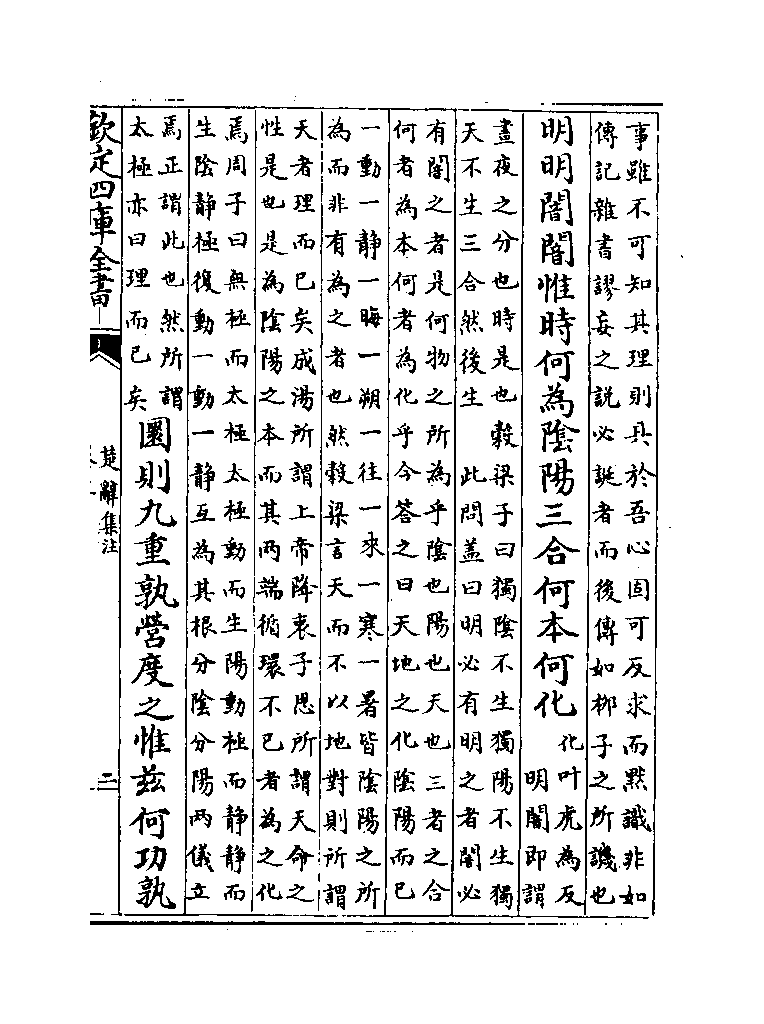 事雖不可知其理則具於吾心固可反求而黙識非如
傳記雜書謬妄之說必誕者而後傳如栁子之所譏也
明明闇闇惟時何為陰陽三合何本何化
化叶虎為反
明闇即謂
晝夜之分也時是也 穀梁子曰獨陰不生獨陽不生獨
天不生三合然後生 此問蓋曰明必有明之者闇必
有闇之者是何物之所為乎陰也陽也天也三者之合
何者為本何者為化乎今荅之曰天地之化陰陽而已
一動一静一晦一朔一往一來一寒一暑皆陰陽之所
為而非有為之者也然穀梁言天而不以地對則所謂
天者理而已矣成湯所謂上帝降衷子思所謂天命之
性是也是為陰陽之本而其两端循環不已者為之化
焉周子曰無極而太極太極動而生陽動極而静静而
生陰静極復動一動一静互為其根分陰分陽两儀立
焉正謂此也然所謂
太極亦曰理而已矣
圜則九重孰營度之惟兹何功孰
欽定四庫全書
楚辭集注
二